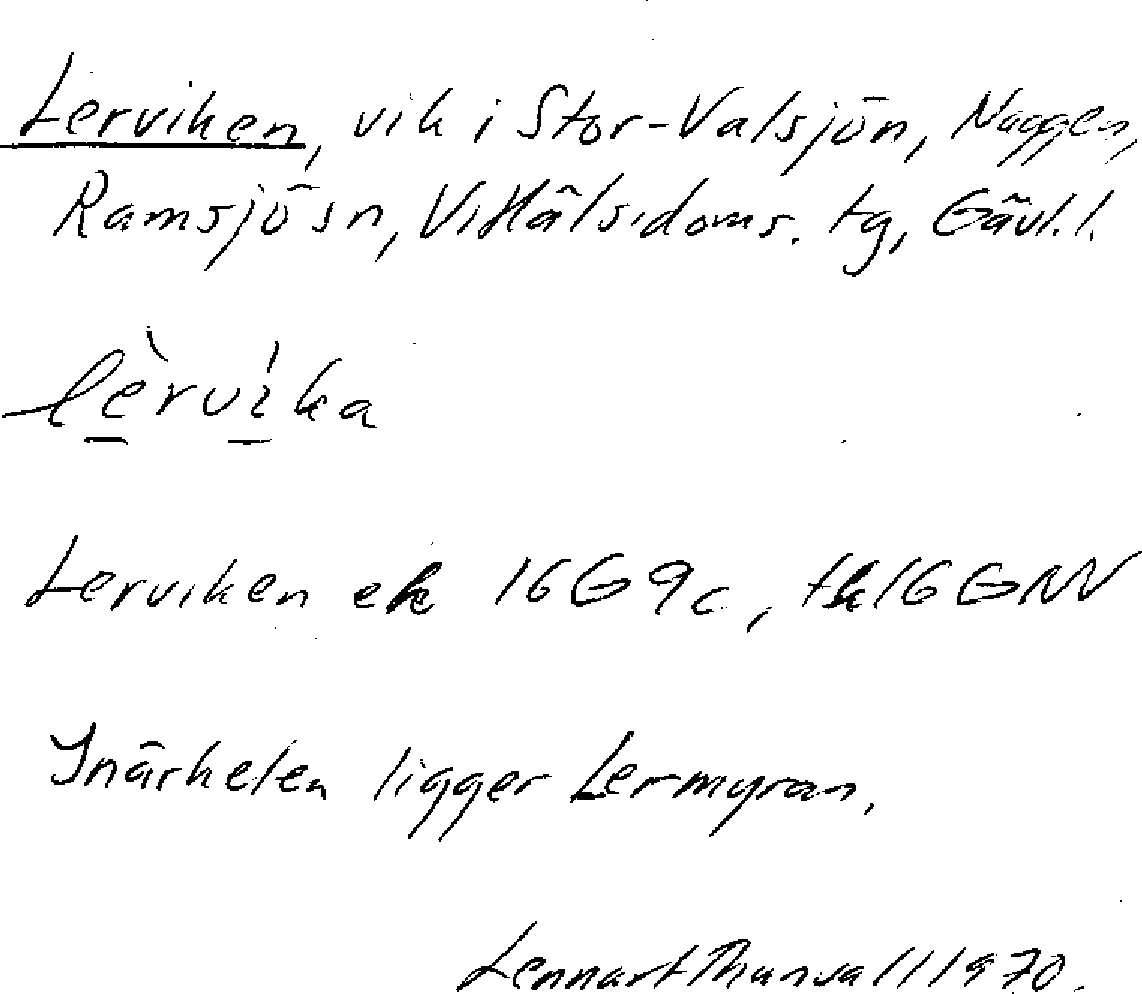 Lerviken, vik i Stor-Valsjön, Naggen,
Ramsjö sn, V. Häls. doms. tg, Gävl. l.
lèrvìka
Lerviken ek 16G9c, tk16GNV
I närheten ligger Lermyran.
Lennart Thunvall 1970.